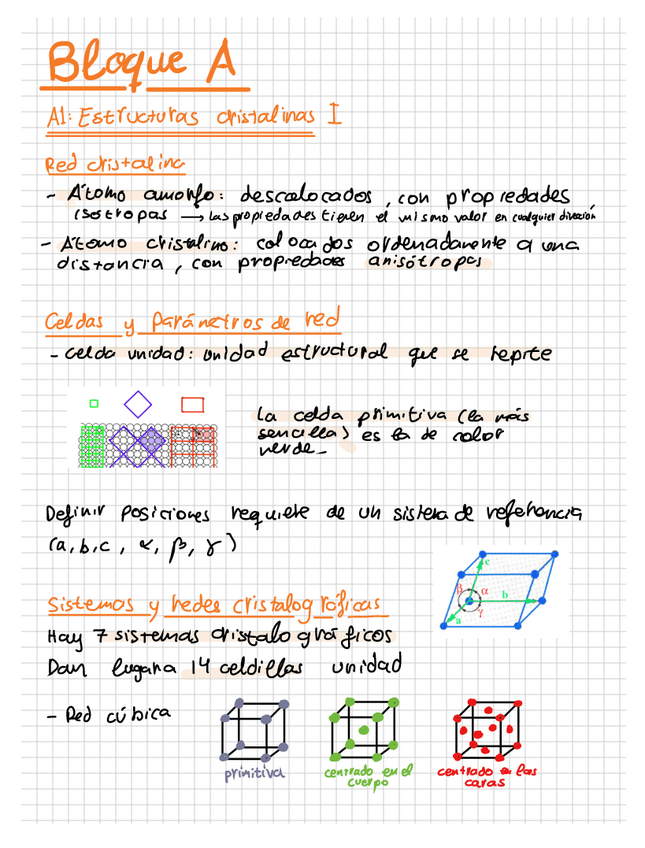 Bloque A
A1: Estructuras cristalinas I
Red cristalina
- Átomo amorfo: descolocados, con propiedades
isótropas → las propiedades tienen el mismo valor en cualquier dirección
- Átomo cristalino: colocados ordenadamente a una
distancia, con propiedades anisótropas
Celdas y parámetros de red
- Celda unidad: unidad estructural que se repite
La celda primitiva (la más
sencilla) es la de color
verde.
Definir posiciones requiere de un sistema de referencia
(a, b, c, α, β, γ)
c
β α b
γ
a
Sistemas y redes cristalográficas
Hay 7 sistemas cristalográficos
Dan lugar a 14 celdillas unidad
- Red cúbica
primitiva
centrado en el
cuerpo
centrado en las
caras